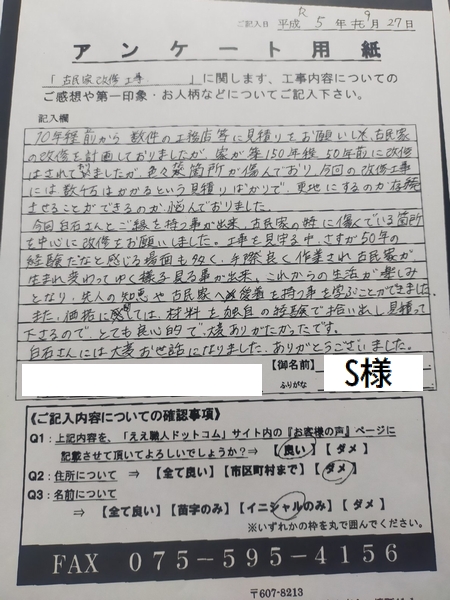 ご記入日 平成 R 5 年 9 月 27 日
アンケート用紙
「古民家改修工事 」に関します、工事内容についての
ご感想や第一印象・お人柄などについてご記入下さい。
記入欄
10年程前から数件の工務店等に見積りをお願いし、古民家
の改修を計画しておりましたが、家が築150年程、50年前に改修
はされて居ましたが、色々な箇所が傷んでおり、今回の改修工事
には数千万はかかるという見積りばかりで、更地にするのか存続
させることができるのか、悩んでおりました。
今回白石さんとご縁を持つ事が出来、古民家の特に傷んでいる箇所
を中心に改修をお願いしました。工事を見守る中、さすが50年の
経験だなと感じる場面も多く、手際良く作業され古民家が
生まれ変わってゆく様子見る事が出来、これからの生活が楽しみ
となり、先人の知恵や古民家へ愛着を持つ事を学ぶことができました。
また、価格に関しては、材料を独自の経験で拾い出し見積って
下さるので、とても良心的で、大変ありがたかったです。
白石さんには大変お世話になりました。ありがとうございました。
【御名前】 S様
ふりがな
《ご記入内容についての確認事項》
Q1：上記内容を、「ええ職人ドットコム」サイト内の『お客様の声』ページに
記載させて頂いてよろしいでしょうか？⇒ 【良い】 【ダメ】
Q2：住所について ⇒ 【全て良い】【市区町村まで】【ダメ】
Q3：名前について
⇒ 【全て良い】【苗字のみ】【イニシャルのみ】【ダメ】
※いずれかの枠を丸で囲んでください。
FAX 075-595-4156
〒607-8213